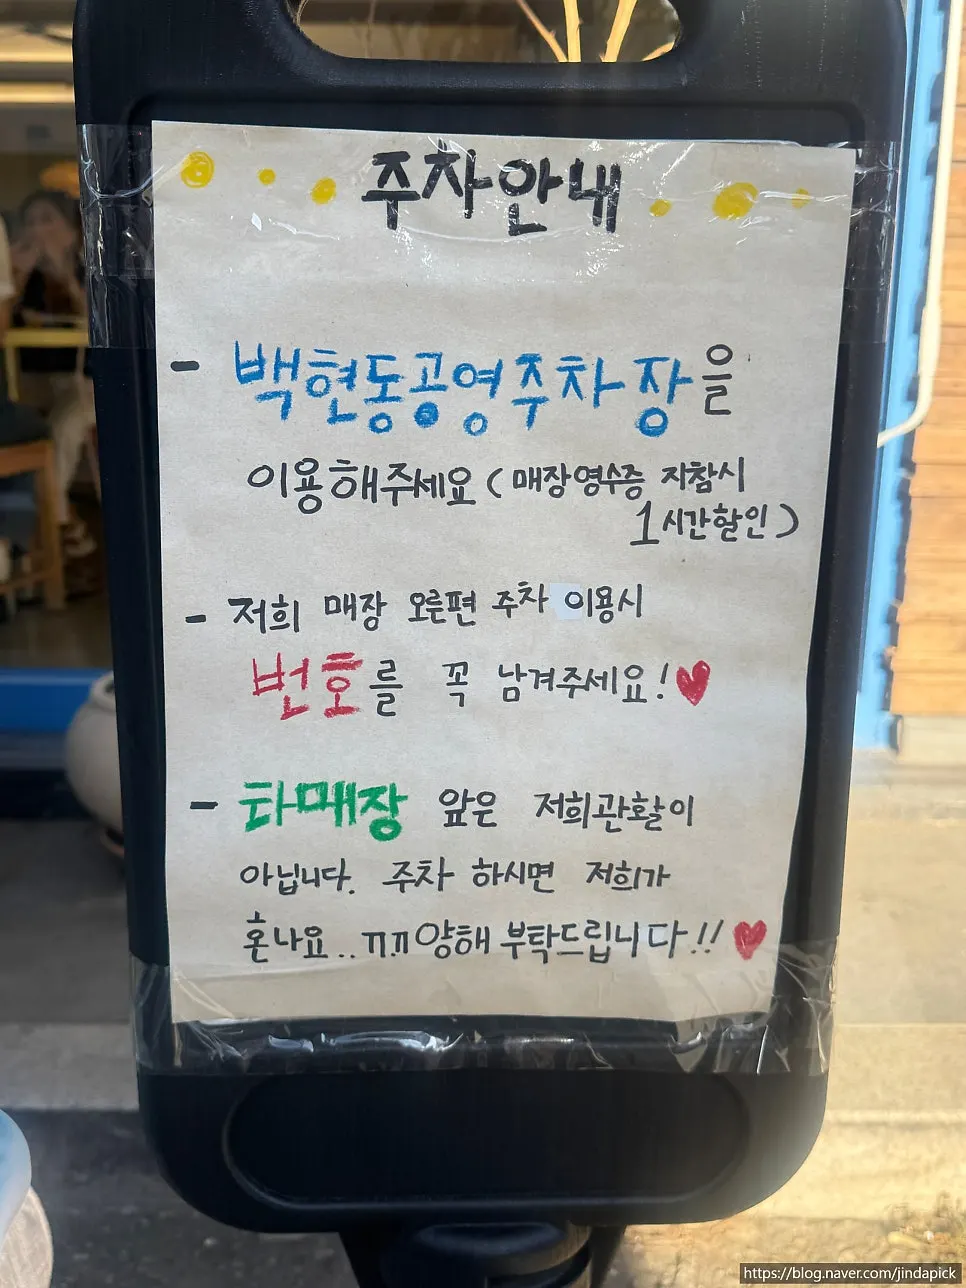 주차안내
- 백현동공영주차장을
이용해주세요 (매장영수증 지참시
1시간할인)
- 저희 매장 오른편 주차 이용시
번호를 꼭 남겨주세요!
- 타매장 앞은 저희관할이
아닙니다. 주차 하시면 저희가
혼나요.. ㅠㅠ양해 부탁드립니다!!
https://blog.naver.com/jindapick